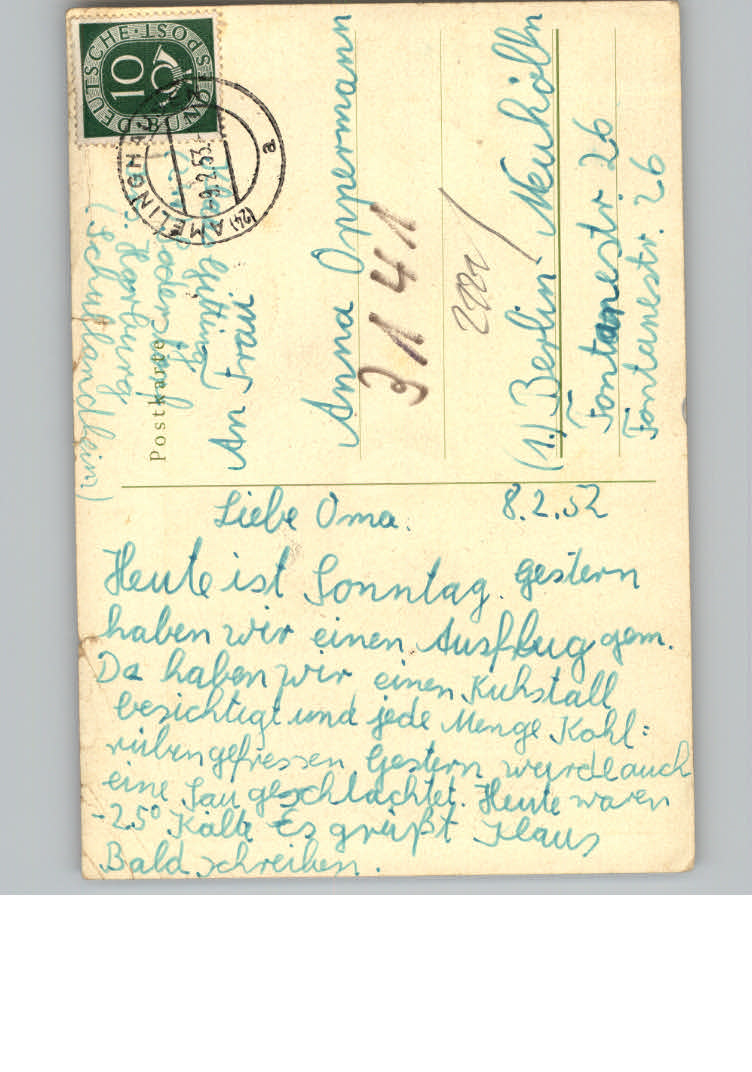 DEUTSCHE BUNDESPOST
10
(24) AMELINGH
-9.2.53.
a
Klaus
Harburg
(Schullandheim)
Postkarte
An Frau
Anna Oppermann
3141
(1.) Berlin-Neukölln
Fontanestr. 26
Fontanestr. 26
8.2.52
Liebe Oma.
Heute ist Sonntag. Gestern
haben wir einen Ausflug gem.
Da haben wir einen Kuhstall
besichtigt und jede Menge Kohl=
rüben gefressen Gestern wurde auch
eine Sau geschlachtet. Heute waren
-25° Kälte Es grüßt Klaus
Bald schreiben.